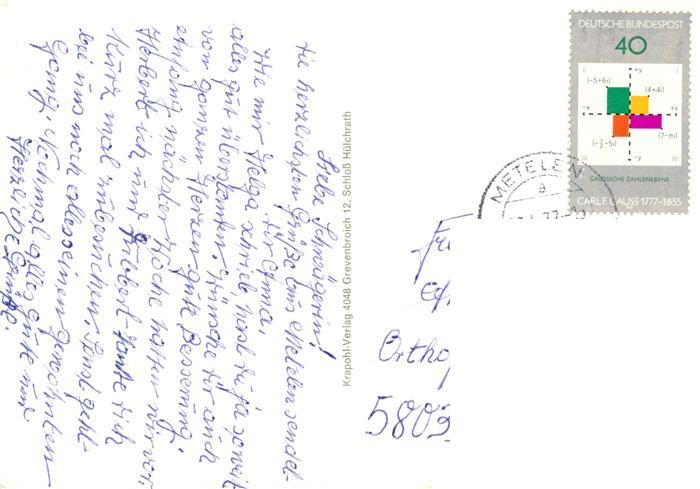 Liebe Schwägerin!
die herzlichsten Grüße aus Metelen sendet
Dir Erma.
Wie mir Helga schrieb hast du ja soweit
alles gut überstanden. Wünsche dir auch
von ganzem Herzen gute Besserung.
anfang nächster Woche hatten wir vor
Herbert ich und Hubert Tante dich
Kurz mal zu besuchen. Sonst geht
bei uns noch alles seinen gewohnten
Gang. Nochmal alles gute und
Herzliche Grüße.
Krapohl-Verlag 4048 Grevenbroich 12, Schloß Hülchrath
DEUTSCHE BUNDESPOST
40
II
+y
I
(-5+6i)
(4+4i)
-x
+x
(7-πi)
III
-y
IV
GAUSSSCHE ZAHLENEBENE
CARL F. GAUSS 1777-1855
METELEN
a
77-
Fr
Ortho
5803